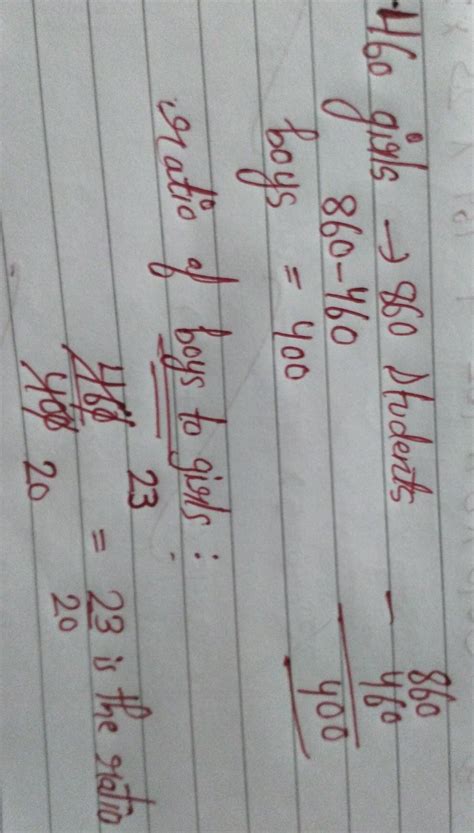 460 girls → 860 students
860-460
boys = 400
- 860
460
400
ratio of boys to girls :
460 23
400 20
= 23 is the ratio
20